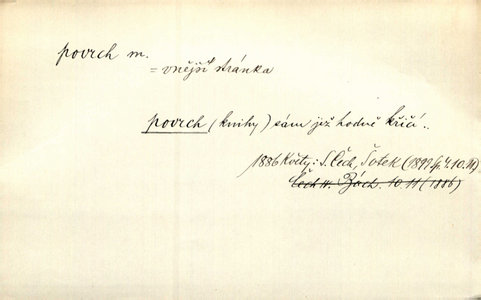 povrch m.
= vnější stránka
povrch (knihy) sám již hodně křičí..
1886 Květy: S. Čech, Šotek (1899 Sp. 4. 10. 11)
Čech IV. 10. 11 (1886)